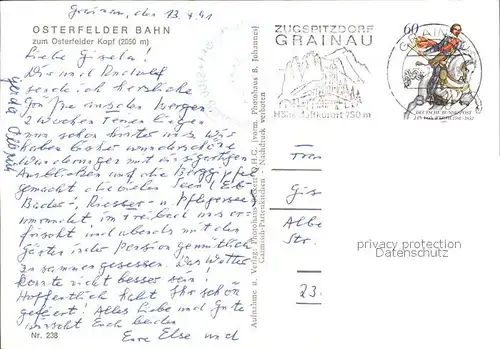 Grainau, den 13.9.91
OSTERFELDER BAHN
zum Osterfelder Kopf (2050 m)
Liebe Gisela!
Dir und Rudolf
sende ich herzliche
Grüße aus den Bergen.
2 Wochen Ferien liegen
nun schon hinter uns. Wir
haben bisher wunderschöne
Wanderungen mit einzigartigen
Ausblicken auf die Berggipfel
gemacht die vielen Seen (Eib-
Bader-, Riesser- u. Pflegersee
im
frischt und abends mit den
Gästen in der Pension gemütlich
zusammen gesessen. Das Wetter
konnte nicht besser sein!
Hoffentlich habt Ihr schön
gefeiert! Alles liebe und Gute
wünscht Euch beiden
Eure Else und
Nr. 238
Aufnahme u. Verlag: Photohaus O.H.G. (vorm. Photohaus B. Johannes)
Garmisch-Partenkirchen - Nachdruck verboten
ZUGSPITZDORF
GRAINAU
Höhenluftkurort 750 m
60
GRAINAU
DEUTSCHE BUNDESPOST
Gis
Albe
Str.
23.
privacy protection
Datenschutz